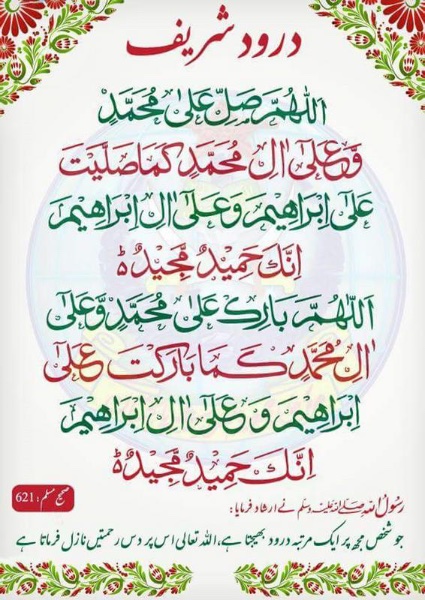 درود شریف
اَللّٰهُمَّ صَلِّ عَلٰى مُحَمَّدٍ
وَّعَلٰٓى اٰلِ مُحَمَّدٍ كَمَا صَلَّيْتَ
عَلٰٓى اِبْرَاهِيْمَ وَعَلٰٓى اٰلِ اِبْرَاهِيْمَ
اِنَّكَ حَمِيْدٌ مَّجِيْدٌ ؕ
اَللّٰهُمَّ بَارِكْ عَلٰى مُحَمَّدٍ وَّعَلٰٓى
اٰلِ مُحَمَّدٍ كَمَا بَارَكْتَ عَلٰٓى
اِبْرَاهِيْمَ وَعَلٰٓى اٰلِ اِبْرَاهِيْمَ
اِنَّكَ حَمِيْدٌ مَّجِيْدٌ ؕ
رسول اللہ صلی اللہ علیہ وسلم نے ارشاد فرمایا:
صحیح مسلم: 621
جو شخص مجھ پر ایک مرتبہ درود بھیجتا ہے، اللہ تعالی اس پر دس رحمتیں نازل فرماتا ہے